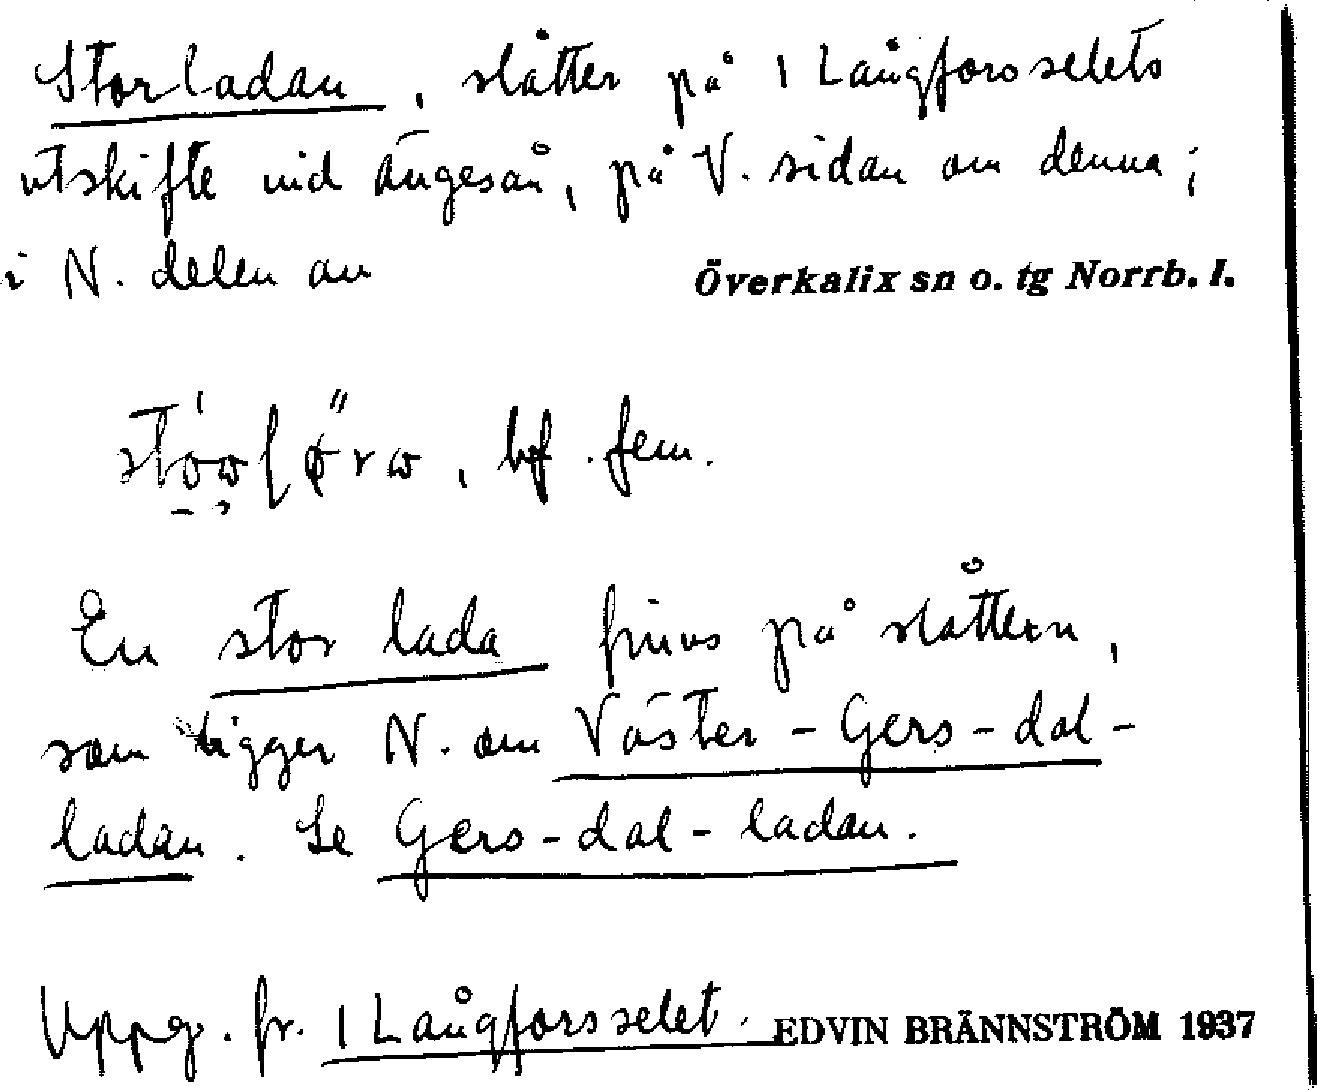 Storladan, slåtter på 1 Långforsselets
utskifte vid Ängesån, på V. sidan om denna;
i N. delen av
Överkalix sn o. tg Norrb. l.
, bf. fem.
En stor lada finns på slåttern,
som ligger N. om Väster-Gers-dal-
ladan. Se Gers-dal-ladan.
Uppg. fr. 1 Långforsselet.
EDVIN BRÄNNSTRÖM 1937